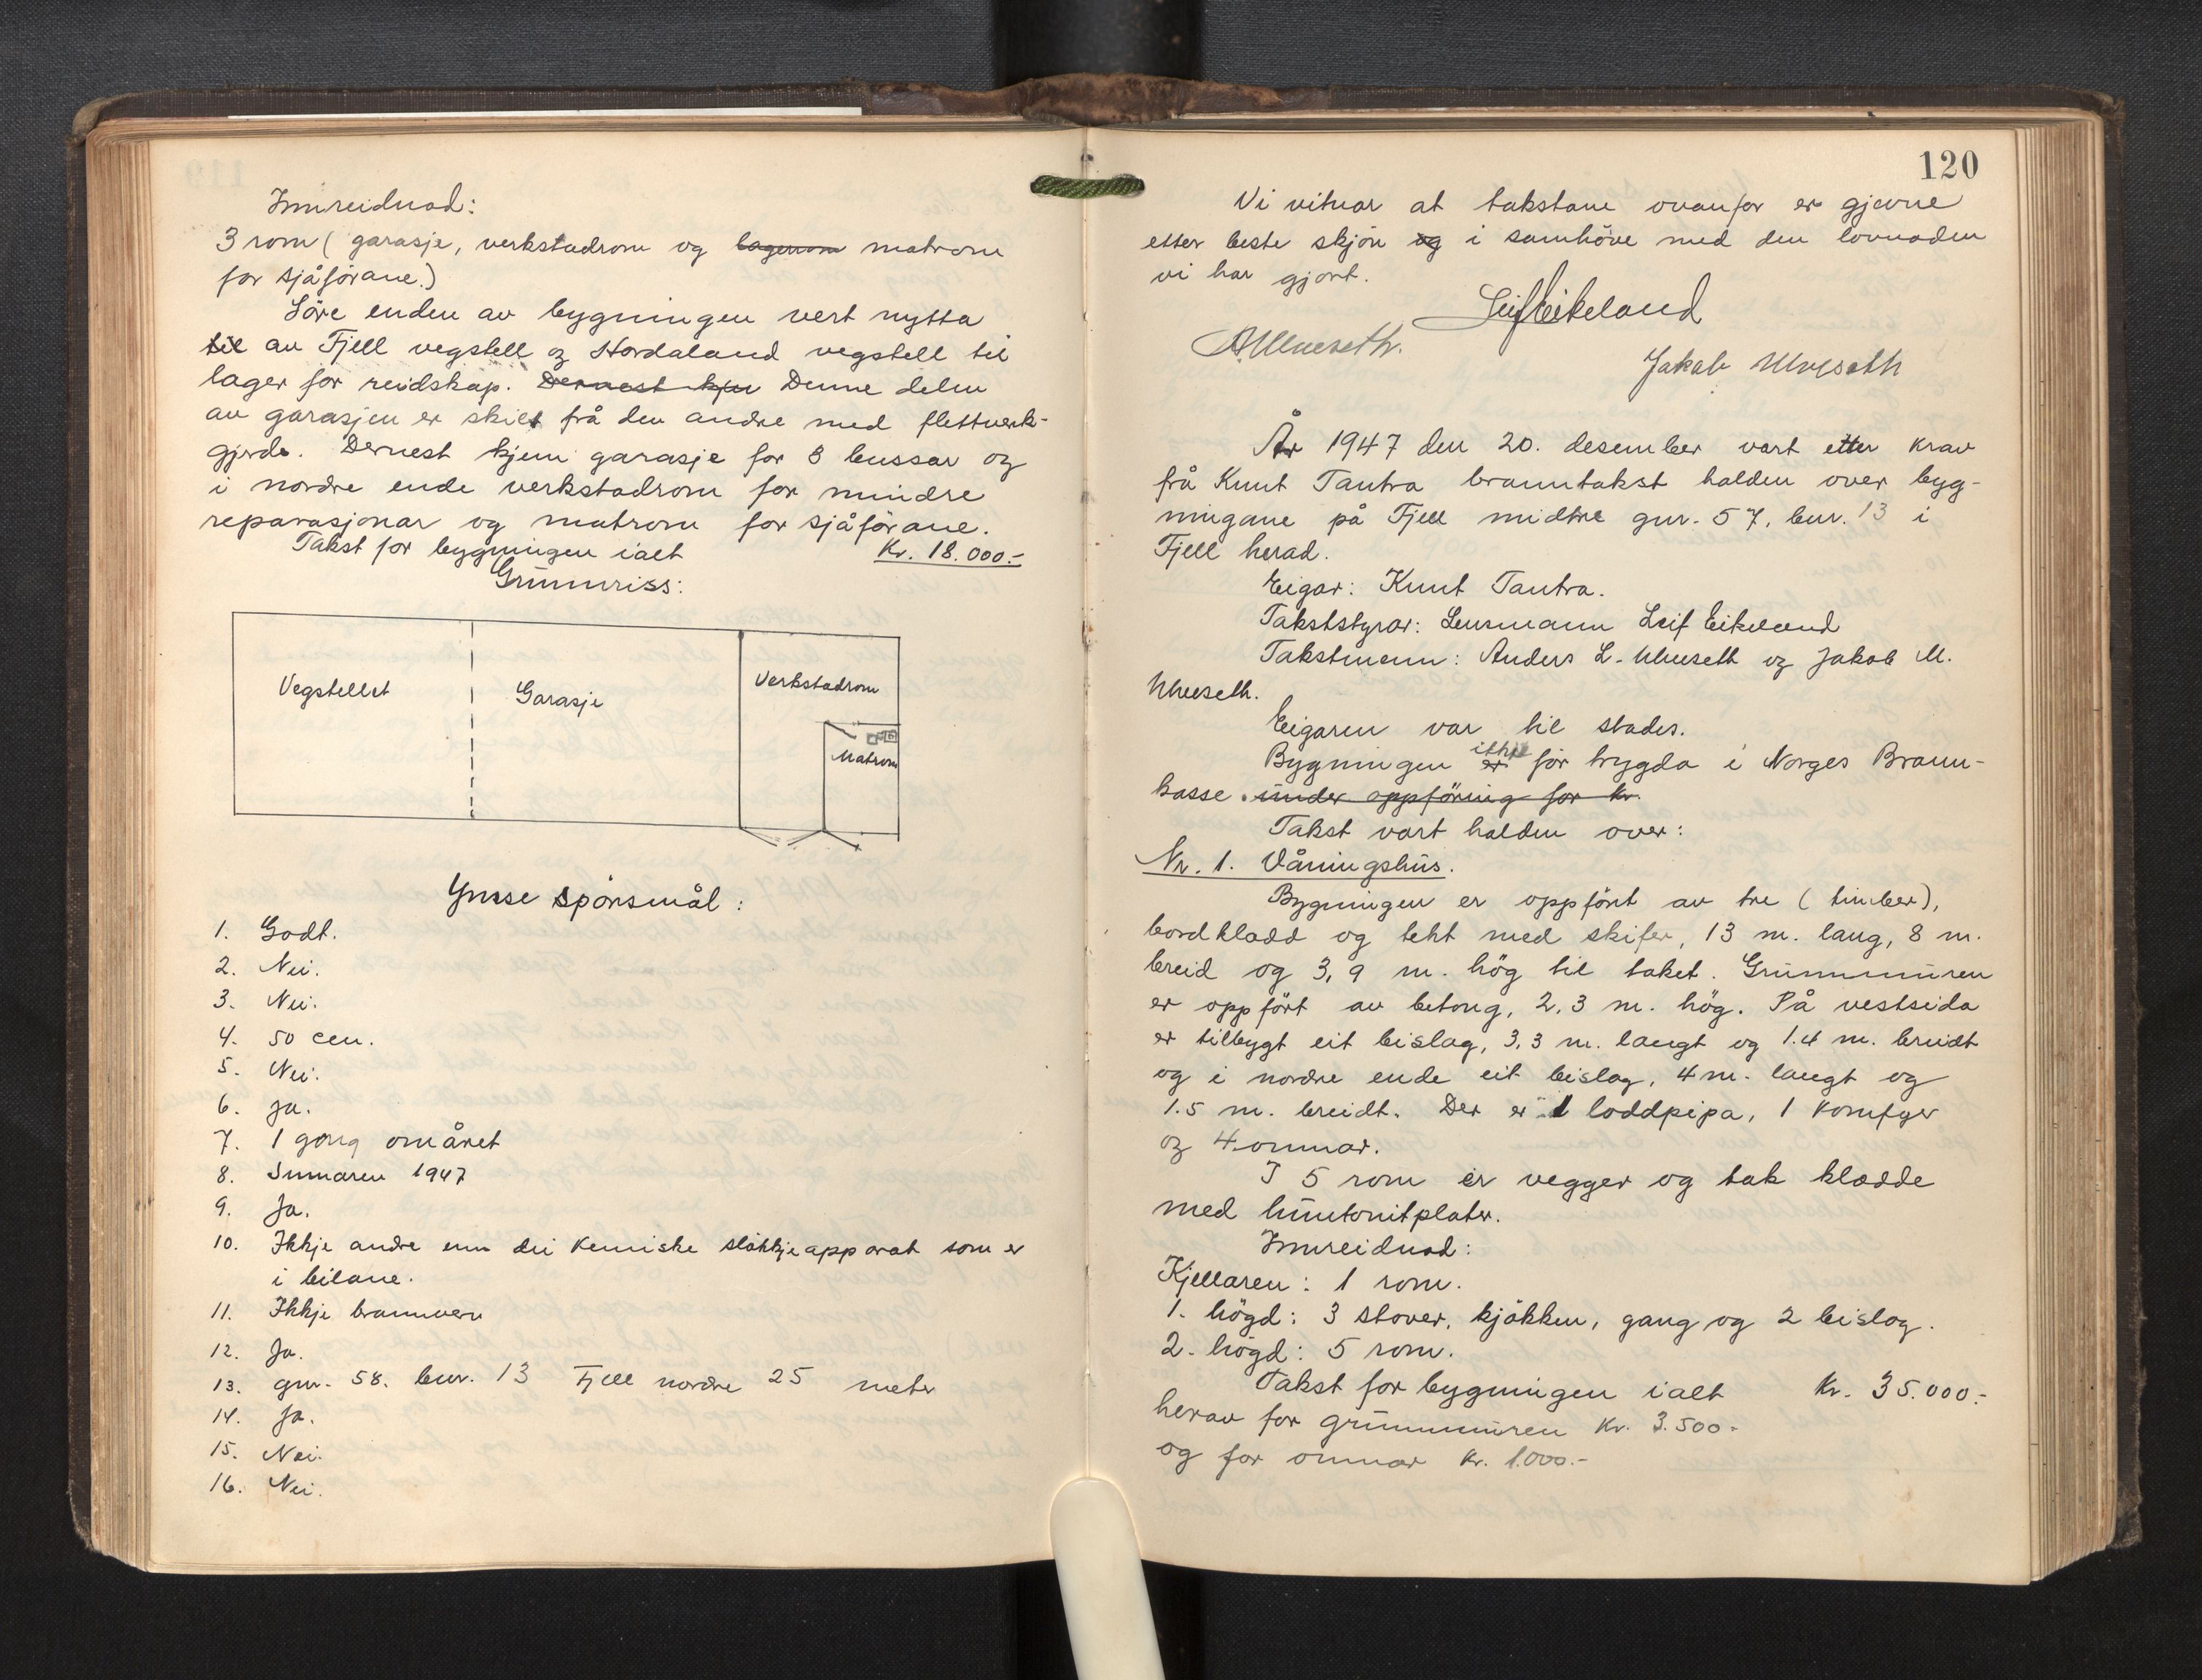 Innreidnad:
3 rom (garasje, verkstadrom og lagerrom matrom
for sjåførane.)
Søre enden av bygningen vert nytta
til av Fjell vegstell og Hordaland vegstell til
lager for reidskap. Dernest kjem Denne delen
av garasjen er skilt frå den andre med flettverk-
gjerde. Dernest kjem garasje for 8 bussar og
i nordre ende verkstadrom for mindre
reparasjonar og matrom for sjåførane.
Takst for bygningen ialt Kr. 18.000.-
Grunnriss:
Vegstellet
Garasje
Verkstadrom
Matrom
Ymse spørsmål:
1. Godt.
2. Nei.
3. Nei.
4. 50 cm.
5. Nei.
6. Ja.
7. 1 gong om året
8. Sumaren 1947
9. Ja.
10. Ikkje andre enn dei kemiske sløkkjeapparat som er
i bilane.
11. Ikkje brannvern
12. Ja.
13. gnr. 58. bnr. 13 Fjell nordre 25 meter
14. Ja.
15. Nei.
16. Nei.
120
Vi vitnar at takstane ovanfor er gjevne
etter beste skjøn og i samhøve med den lovnaden
vi har gjort.
Leif Eikeland
A Ulveseth.
Jakob Ulveseth
År 1947 den 20. desember vart etter krav
frå Knut Tantra branntakst halden over byg-
ningane på Fjell midtre gnr. 57, bnr. 13 i
Fjell herad.
Eigar: Knut Tantra.
Takststyrar: Lensmann Leif Eikeland
Takstmenn: Anders L. Ulveseth og Jakob M.
Ulveseth.
Eigaren var til stades.
Bygningen er ikkje før trygda i Norges Brann-
kasse. under oppføring for kr.
Takst vart halden over:
Nr. 1. Våningshus.
Bygningen er oppført av tre (timber),
bordkledd og tekt med skifer, 13 m. lang, 8 m.
breid og 3,9 m. høg til taket. Grunnmuren
er oppført av betong, 2,3 m. høg. På vestsida
er tilbygt eit bislag, 3,3 m. langt og 1.4 m. breidt
og i nordre ende eit bislag, 4 m. langt og
1.5 m. breidt. Der er 1 loddpipa, 1 komfyr
og 4 omnar.
I 5 rom er vegger og tak kledde
med huntonitplater.
Innreidnad:
Kjellaren: 1 rom.
1. høgd: 3 stover, kjøkken, gang og 2 bislag.
2. høgd: 5 rom.
Takst for bygningen ialt Kr. 35.000.-
herav for grunnmuren Kr. 3.500.-
og for omnar kr. 1.000.-